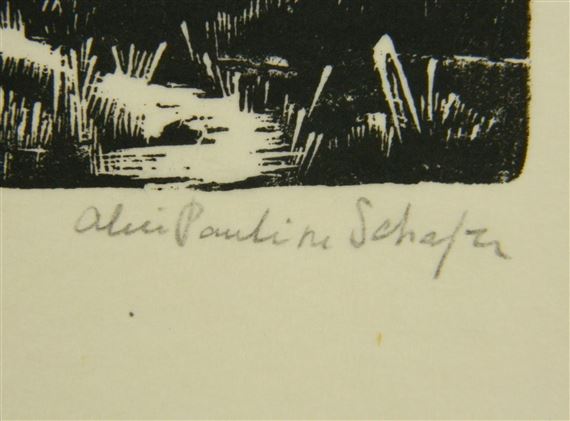 Alice Pauline Schafer